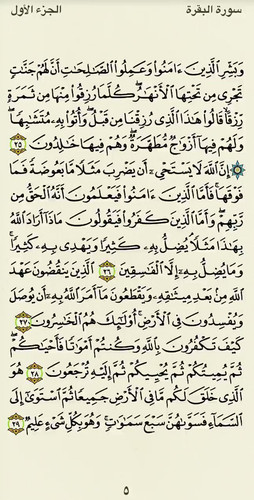 سورة البقرة
الجزء الأول
وَبَشِّرِ ٱلَّذِينَ ءَامَنُوا۟ وَعَمِلُوا۟ ٱلصَّٰلِحَٰتِ أَنَّ لَهُمْ جَنَّٰتٍ
تَجْرِى مِن تَحْتِهَا ٱلْأَنْهَٰرُ ۖ كُلَّمَا رُزِقُوا۟ مِنْهَا مِن ثَمَرَةٍ
رِّزْقًا ۙ قَالُوا۟ هَٰذَا ٱلَّذِى رُزِقْنَا مِن قَبْلُ ۖ وَأُتُوا۟ بِهِۦ مُتَشَٰبِهًا ۖ
وَلَهُمْ فِيهَآ أَزْوَٰجٌ مُّطَهَّرَةٌ ۖ وَهُمْ فِيهَا خَٰلِدُونَ ٢٥
۞ إِنَّ ٱللَّهَ لَا يَسْتَحْىِۦٓ أَن يَضْرِبَ مَثَلًا مَّا بَعُوضَةً فَمَا
فَوْقَهَا ۚ فَأَمَّا ٱلَّذِينَ ءَامَنُوا۟ فَيَعْلَمُونَ أَنَّهُ ٱلْحَقُّ مِن
رَّبِّهِمْ ۖ وَأَمَّا ٱلَّذِينَ كَفَرُوا۟ فَيَقُولُونَ مَاذَآ أَرَادَ ٱللَّهُ
بِهَٰذَا مَثَلًا ۘ يُضِلُّ بِهِۦ كَثِيرًا وَيَهْدِى بِهِۦ كَثِيرًا ۚ
وَمَا يُضِلُّ بِهِۦٓ إِلَّا ٱلْفَٰسِقِينَ ٢٦ ٱلَّذِينَ يَنقُضُونَ عَهْدَ
ٱللَّهِ مِنۢ بَعْدِ مِيثَٰقِهِۦ وَيَقْطَعُونَ مَآ أَمَرَ ٱللَّهُ بِهِۦٓ أَن يُوصَلَ
وَيُفْسِدُونَ فِى ٱلْأَرْضِ ۚ أُو۟لَٰٓئِكَ هُمُ ٱلْخَٰسِرُونَ ٢٧
كَيْفَ تَكْفُرُونَ بِٱللَّهِ وَكُنتُمْ أَمْوَٰتًا فَأَحْيَٰكُمْ ۖ
ثُمَّ يُمِيتُكُمْ ثُمَّ يُحْيِيكُمْ ثُمَّ إِلَيْهِ تُرْجَعُونَ ٢٨ هُوَ
ٱلَّذِى خَلَقَ لَكُم مَّا فِى ٱلْأَرْضِ جَمِيعًا ثُمَّ ٱسْتَوَىٰٓ إِلَى
ٱلسَّمَآءِ فَسَوَّىٰهُنَّ سَبْعَ سَمَٰوَٰتٍ ۚ وَهُوَ بِكُلِّ شَىْءٍ عَلِيمٌ ٢٩
٥